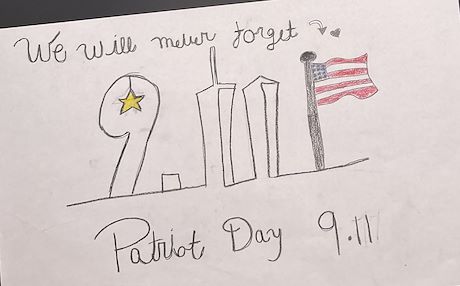 We will never forget
9.11
Patriot Day 9.11